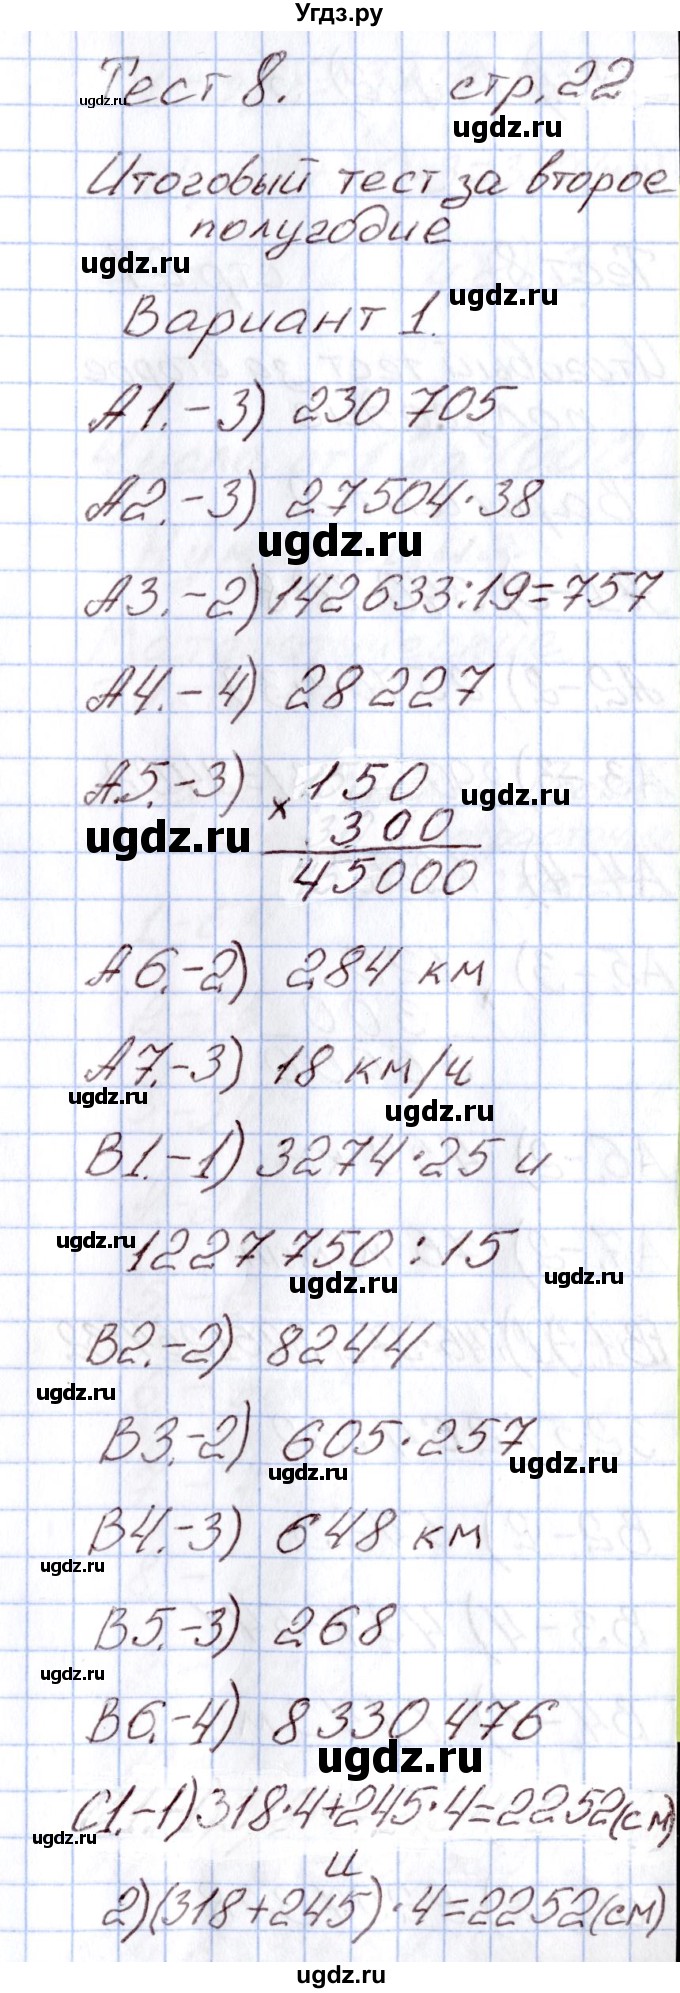 Угдз.ру
Тест 8. стр. 22
ugdz.ru
ugdz.ru
Итоговый тест за второе
полугодие
ugdz.ru
ugdz.ru
Вариант 1.
А1.-3) 230 705
А2.-3) 27504·38
ugdz.ru
А3.-2) 142633:19=757
А4.-4) 28 227
А5.-3) 150
ugdz.ru
× 300
ugdz.ru
45000
А6.-2) 284 км
А7.-3) 18 км/ч
ugdz.ru
ugdz.ru
В1.-1) 3274·25 и
ugdz.ru
1227750:15
ugdz.ru
ugdz.ru
В2.-2) 8244
ugdz.ru
В3.-2) 605·257
ugdz.ru
ugdz.ru
В4.-3) 648 км
ugdz.ru
В5.-3) 268
ugdz.ru
В6.-4) 8330 476
ugdz.ru
С1.-1) 318·4+245·4=2252(см)
ugdz.ru
и
2) (318+245)·4=2252(см)
ugdz.ru